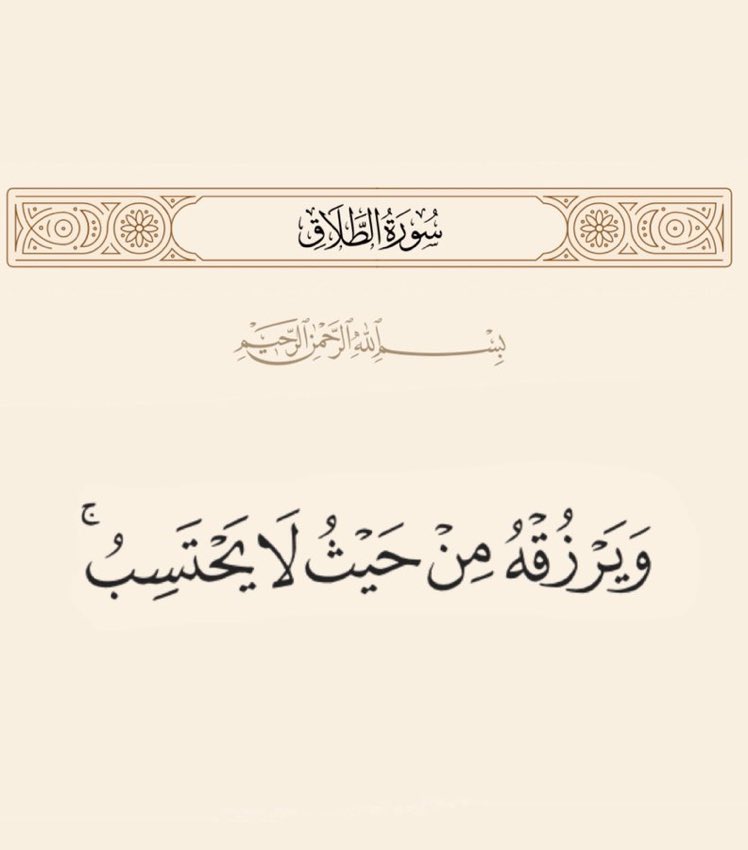 سُورَةُ الطَّلَاقِ
بِسْمِ ٱللَّهِ ٱلرَّحْمَٰنِ ٱلرَّحِيمِ
وَيَرْزُقْهُ مِنْ حَيْثُ لَا يَحْتَسِبُ ۚ